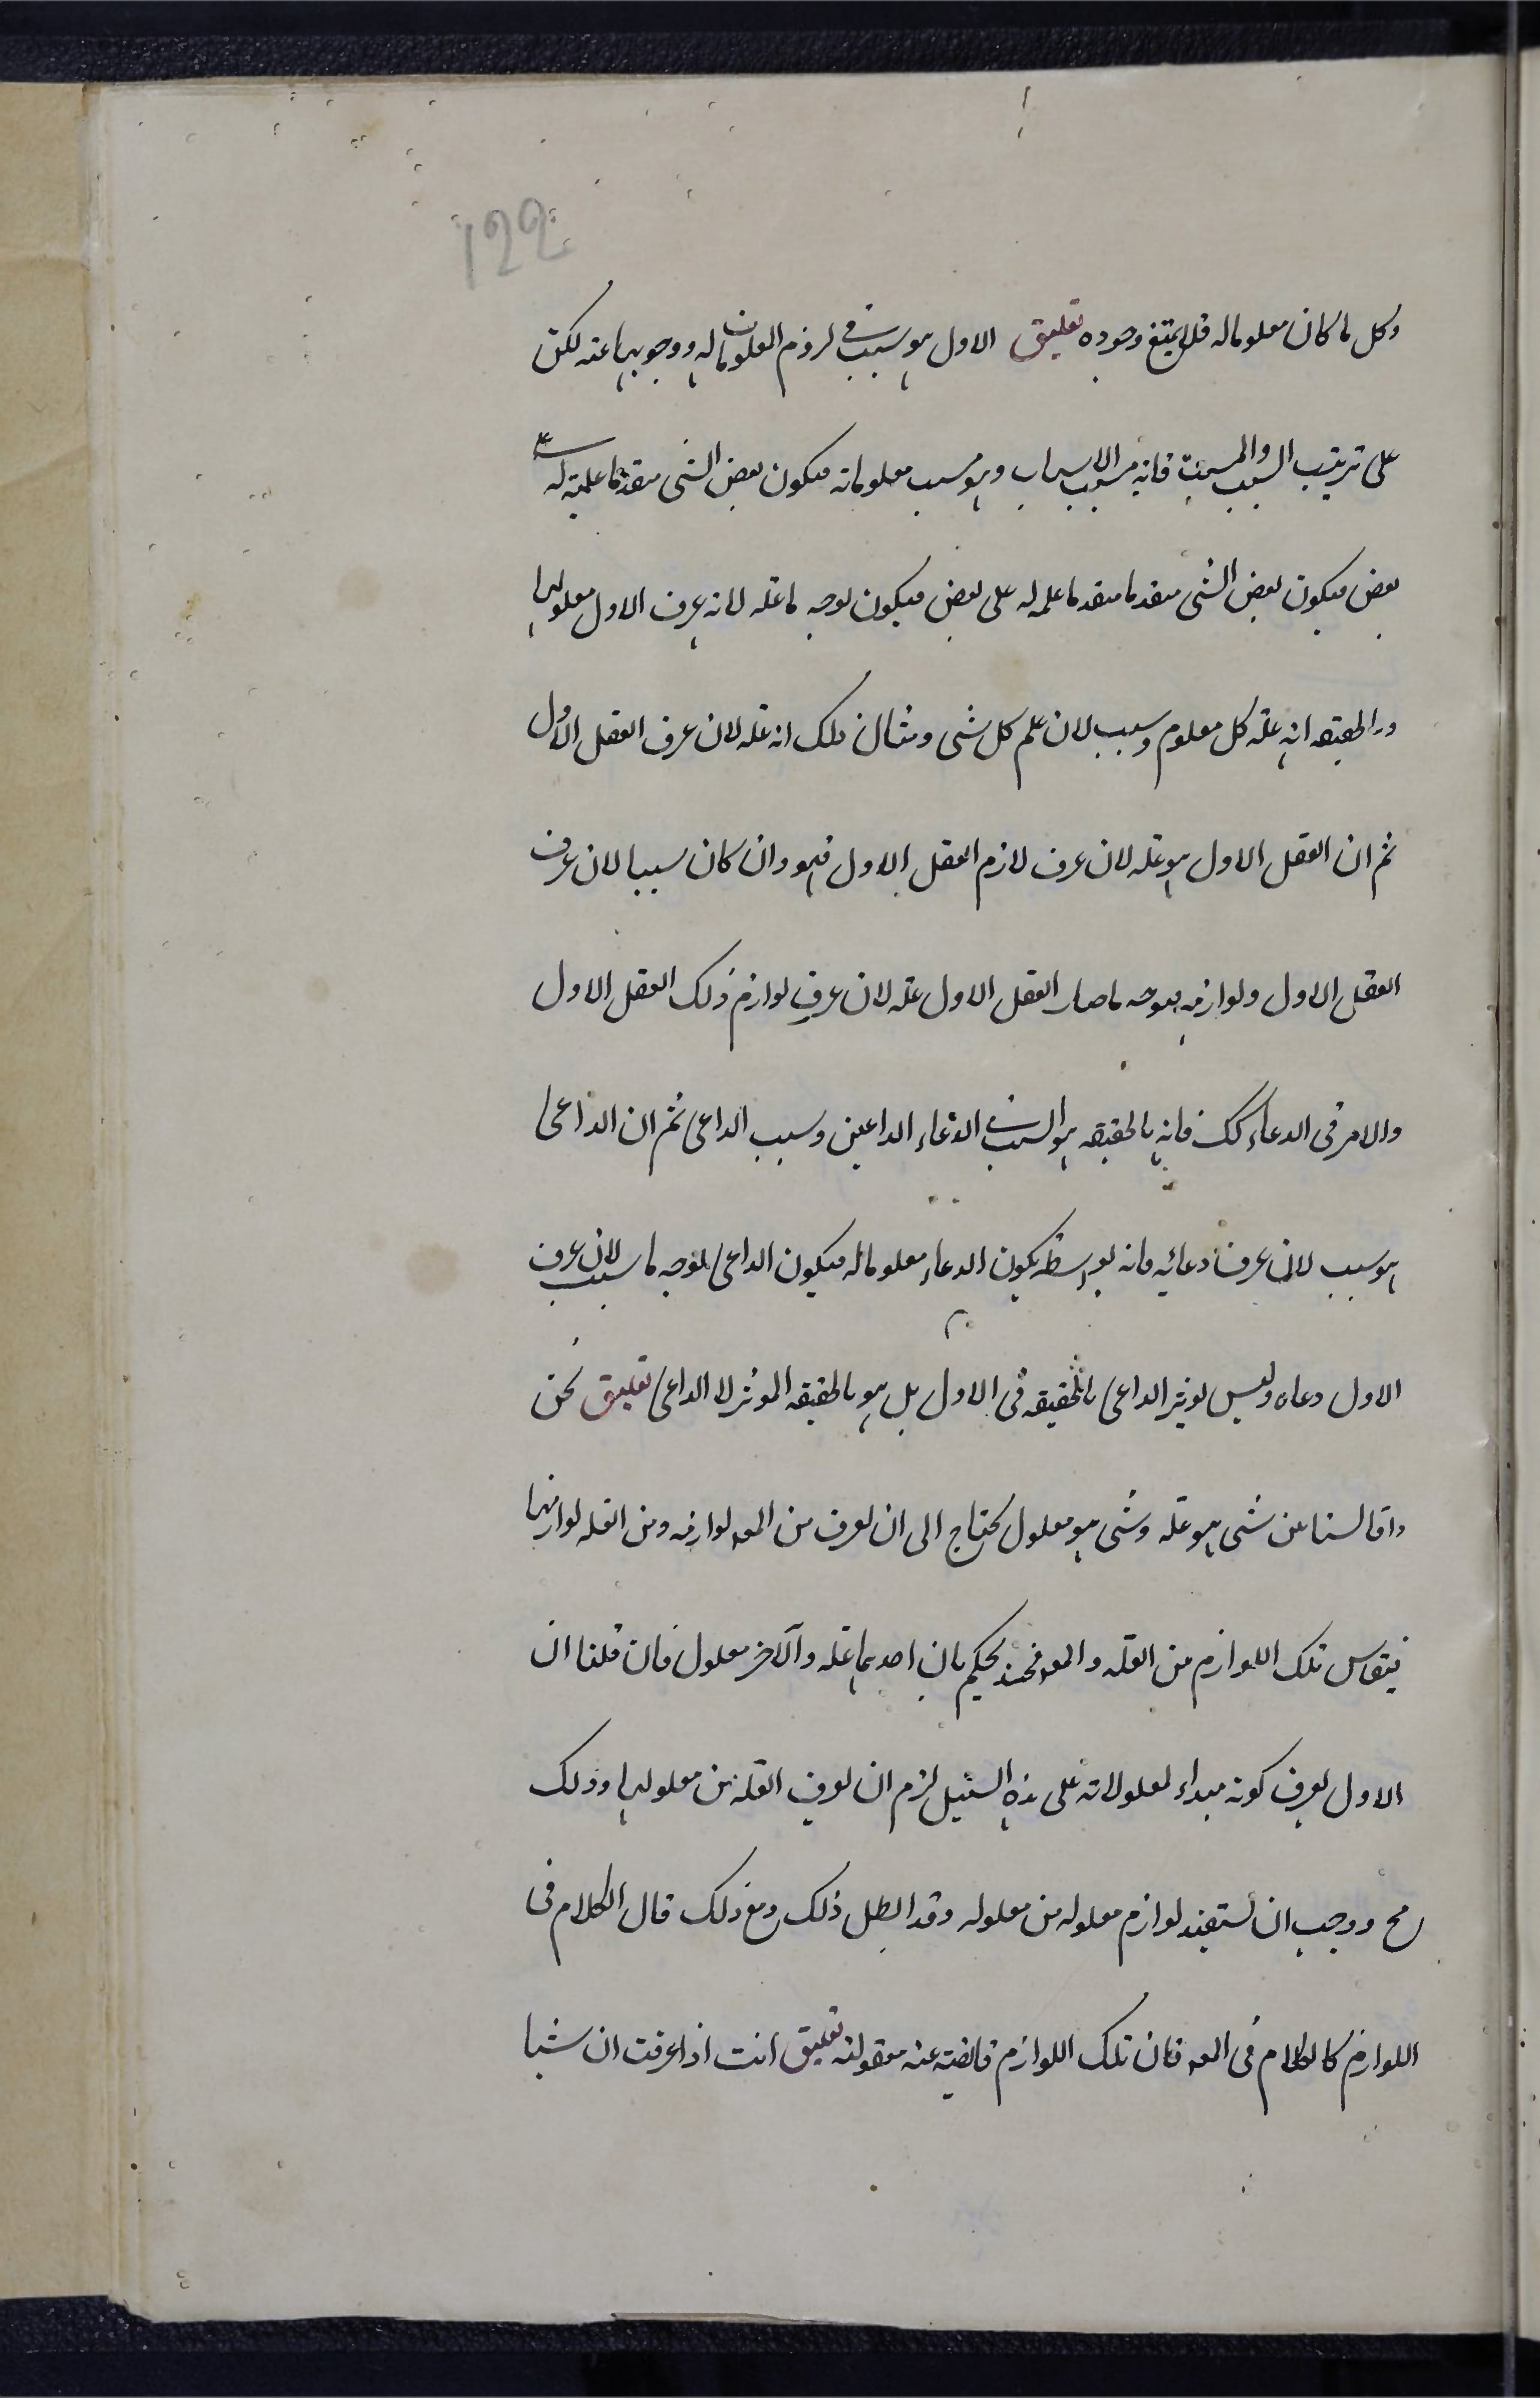 122
وكل ما كان معلوما له فلا يمتنع وجوده تعليق الاول هو سبب فى لزوم المعلومات له ووجوبها عنه لكن
على ترتيب السبب والمسبب فانه مسبب الاسباب وهو سبب معلوماته فيكون بعض الشى متقدما علمية له على
بعض فيكون بعض الشى متقدما متقدما علمه له على بعض فيكون لوجه ما عله لانه عرف الاول معلولها
وبالحقيقه انه علة كل معلوم وسبب لان علم كل شى ومثال ذلك انه عله لان عرف العقل الاول
ثم ان العقل الاول هو عله لان عرف لازم العقل الاول فهو وان كان سببا لان عرف
العقل الاول ولوازمه بوجه ما صار العقل الاول علة لان عرف لوازم ذلك العقل الاول
والامر فى الدعاء كك فانه بالحقيقه هو السبب فى الدعاء الداعين وسبب الداعى ثم ان الداعى
هو سبب لان عرف دعائه فانه بواسطة يكون الدعاء معلوما له فيكون الداعى بوجه ما سبب لان عرف
الاول دعاه وليس يوثر الداعى بالحقيقه فى الاول بل هو بالحقيقه الموثر لا الداعى تعليق نحن
واما لسنا عن شى هو عله وشى هو معلول نحتاج الى ان نعرف من المعـ لوازمه ومن العله لوازمها
فيقاس تلك اللوازم من العلة والمعـ فحينئذ نحكم بان احدهما عله والآخر معلول فان قلنا ان
الاول يعرف كونه مبداء لمعلولاته على هذه السبيل لزم ان يعرف العلة من معلولها وذلك
مح ووجب ان يستفيد لوازم معلوله من معلوله وقد ابطل ذلك ومع ذلك قال الكلام فى
اللوازم كالكلام فى المعـ فان تلك اللوازم فائضة عنه معقولة تعليق انت اذا عرفت ان شيا